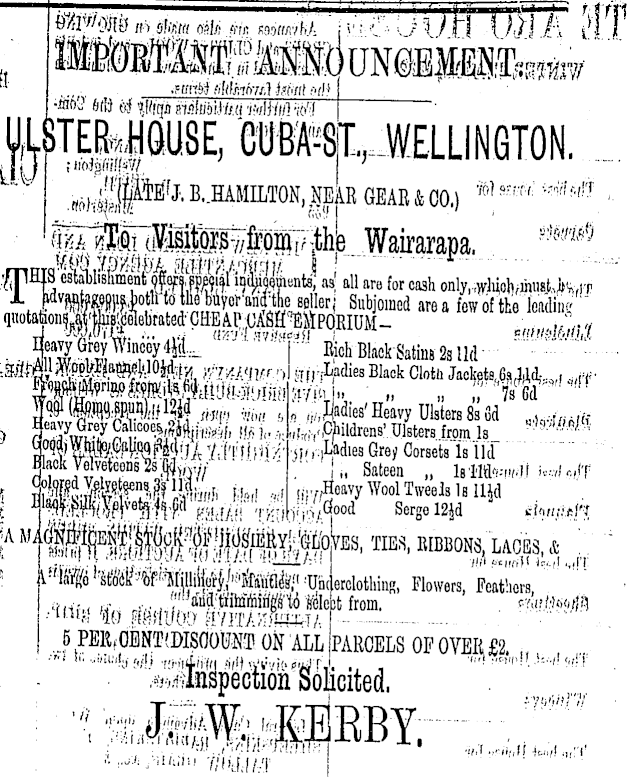 IMPORTANT ANNOUNCEMENT.
ULSTER HOUSE, CUBA-ST., WELLINGTON.
(LATE J. B. HAMILTON, NEAR GEAR & CO.)
To Visitors from the Wairarapa.
THIS establishment offers special inducements, as all are for cash only, which must be
advantageous both to the buyer and the seller. Subjoined are a few of the leading
quotations at this celebrated CHEAP CASH EMPORIUM—
Heavy Grey Wincey 4½d
All Wool Flannel 10½d
French Merino from 1s 6d
Wool (Homespun) 12½d
Heavy Grey Calicoes
Good White Calico
Black Velveteens 2s 6d
Colored Velveteens 3s 11d
Black Silk Velvets 4s 6d
Rich Black Satins 2s 11d
Ladies Black Cloth Jackets 6s 11d
„ „ „ „ 7s 6d
Ladies' Heavy Ulsters 8s 6d
Childrens' Ulsters from 1s
Ladies Grey Corsets 1s 11d
„ Sateen „ 1s 11d
Heavy Wool Tweeds 1s 11½d
Good Serge 12½d
A MAGNIFICENT STOCK OF HOSIERY GLOVES, TIES, RIBBONS, LACES, &
A large stock of Millinery, Mantles, Underclothing, Flowers, Feathers,
and trimmings to select from.
5 PER CENT DISCOUNT ON ALL PARCELS OF OVER £2.
Inspection Solicited.
J. W. KERBY.